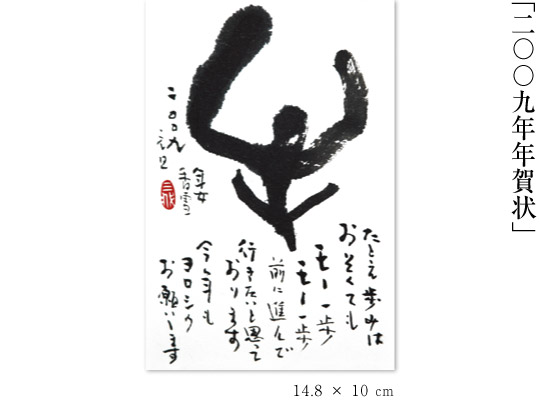 「二〇〇九年年賀状」
牛
たとえ歩みは
おそくても
モー一歩
モー一歩
前に進んで
行きたいと思って
おります
今年も
ヨロシク
お願いします
二〇〇九
元旦
年女
香雪
14.8 × 10 cm